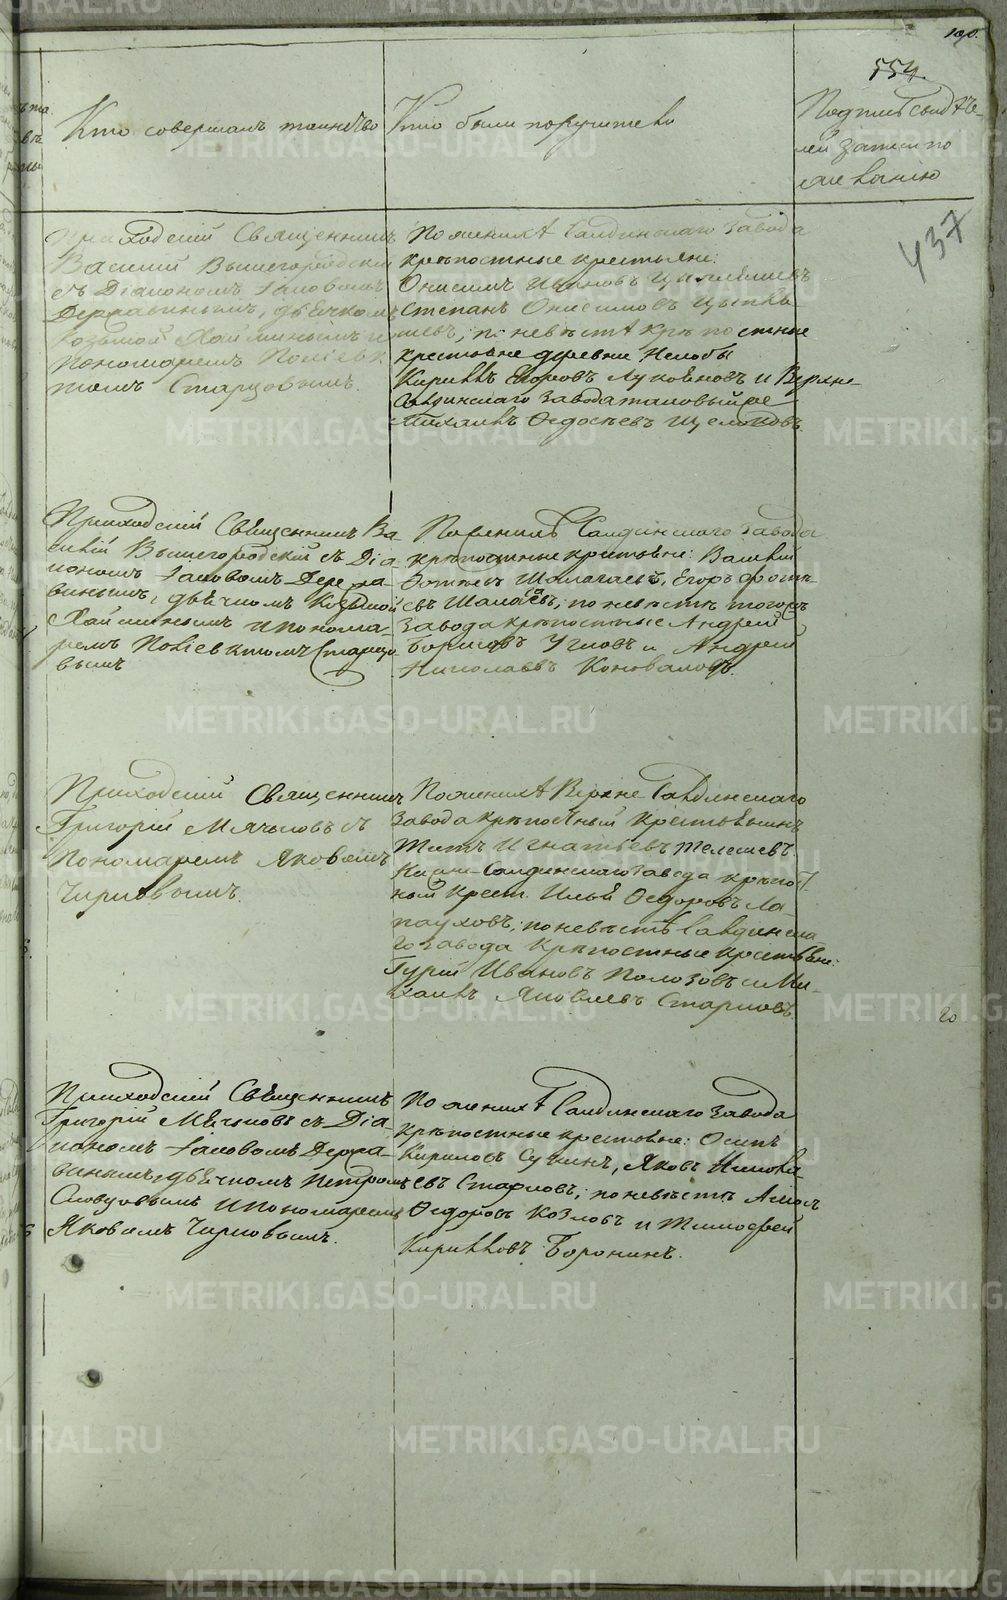 190.
554.
437
Кто совершалъ таинство
Кто были поручители
Подпись свидѣте-
лей записи по
желанію
Приходскій Священникъ
Василій Вышегородскій
съ Діакономъ Іаковомъ
Державинымъ, дьячкомъ
Козьмой Хайминымъ и
пономаремъ Поліевк
томъ Старцовымъ.
По женихѣ Салдинскаго завода
крѣпостные крестьяне:
Онисимъ Ивановъ
Степанъ Онисимовъ
по невѣстѣ крѣпостные
крестьяне деревни Нелобы
Кириллъ Егоровъ Лукояновъ и Верхне
Салдинскаго завода таковый же
Михаилъ Ѳедосѣевъ Щелоковъ.
Приходскій Священникъ Ва
силій Вышегородскій съ Діа
кономъ Іаковомъ Держа
винымъ, дьячкомъ Козьмой
Хайминымъ и понома-
ремъ Поліевктомъ Старцо
вымъ
По женихѣ Салдинскаго завода
крѣпостные крестьяне: Василій
Шалагаевъ, Егоръ
по невѣстѣ того жъ
завода крѣпостные Андрей
Борисовъ Угловъ и Андрей
Николаевъ Коноваловъ.
Приходскій Священникъ
Григорій Мячковъ съ
Пономаремъ Яковомъ
Чирковымъ.
По женихѣ Верхне Салдинскаго
завода крѣпостный крестьянинъ
Титъ Игнатьевъ Телешевъ
Нижне-Салдинскаго завода крѣпост
ный крест. Илья Ѳедоровъ Ла-
пауховъ; по невѣстѣ Салдинска
го завода крѣпостные крестьяне:
Гурій Ивановъ Полозовъ и Ми-
хаилъ Яковлевъ Старковъ
20
Приходскій Священникъ
Григорій Мячковъ съ Діа-
кономъ Іаковомъ Держа-
винымъ, дьячкомъ Петромъ
Словцовымъ и пономаремъ
Яковомъ Чирковымъ.
По женихѣ Салдинскаго завода
крѣпостные крестьяне: Осипъ
Кириловъ Сучинъ, Яковъ
евъ Старковъ; по невѣстѣ
Ѳедоровъ Козловъ и Тимофей
Кирилловъ Боронинъ.
METRIKI.GASO-URAL.RU